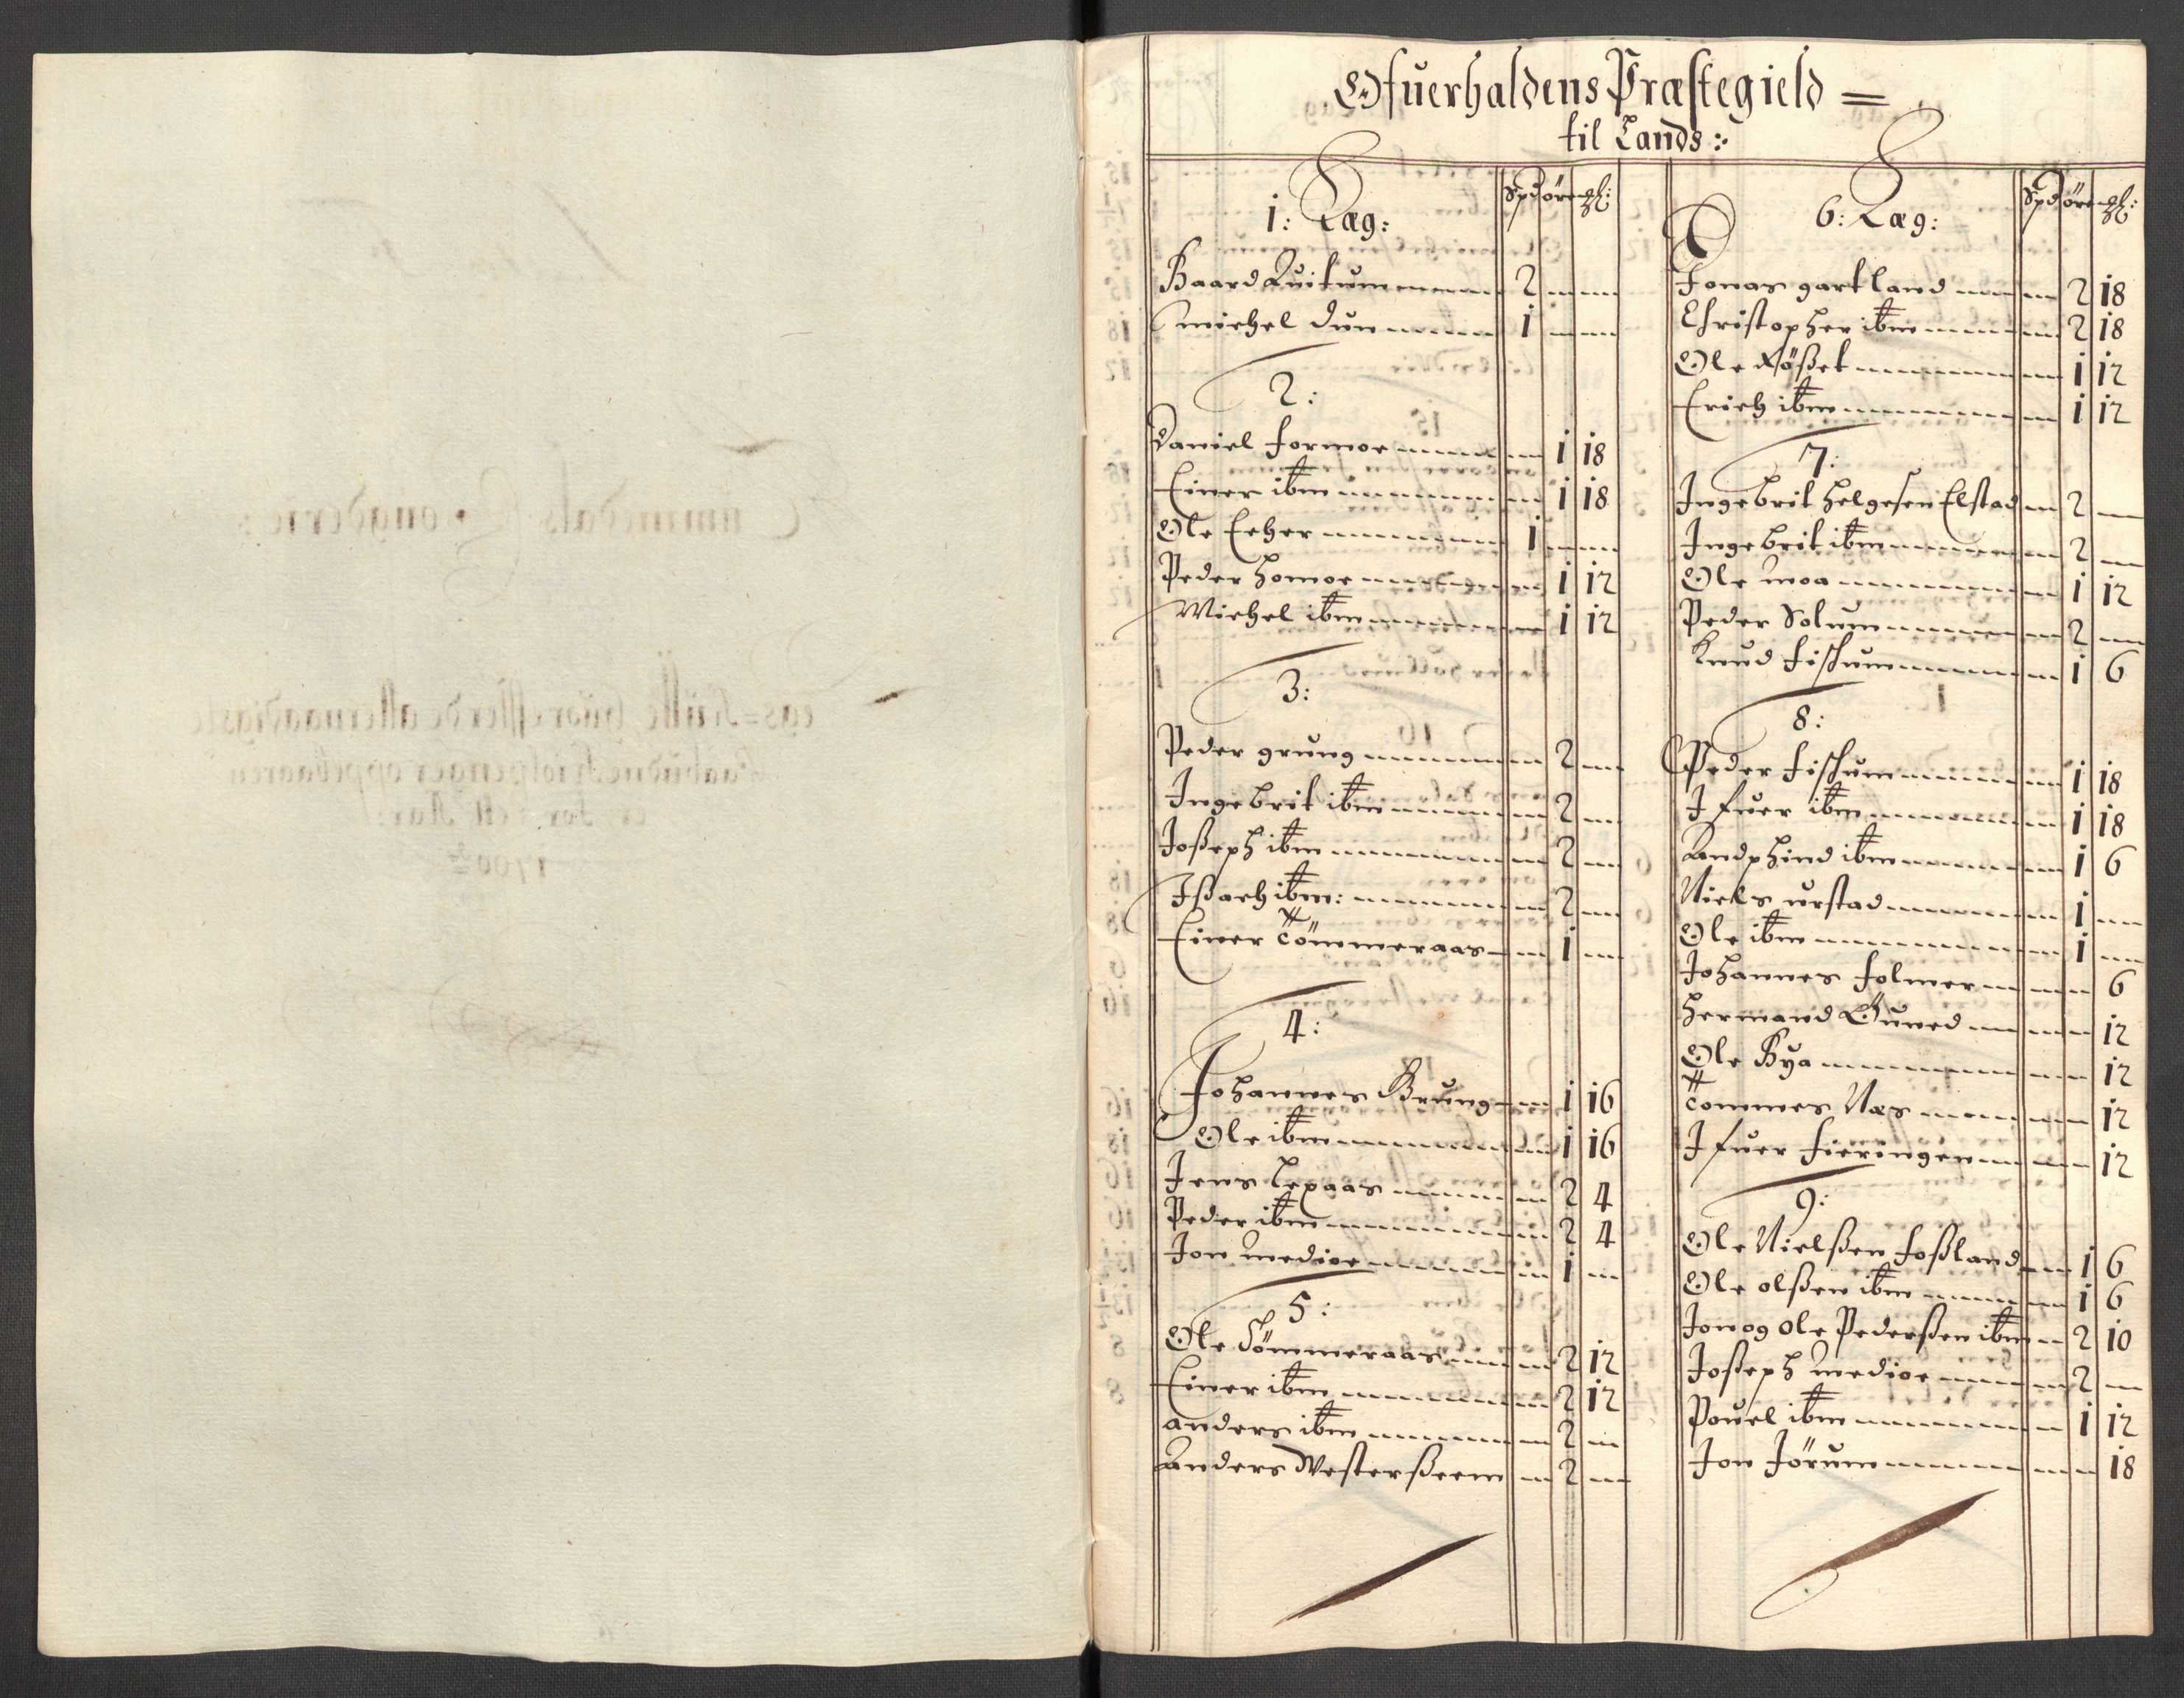 Ofuerhaldens Præstegield =
til Lands :
1: Læg: Spd öre ₰:
Baard Kuitum 2
Michel Dun 1
2:
Daniel Formoe 1 18
Einer ibm 1 18
Ole Eeher 1
Peder homoe 1 12
Michel ibm 1 12
3:
Peder grung 2
Ingebrit ibm 2
Joßeph ibm 2
Ißach ibm: 2
Einer Tömmeraas 1
4:
Johannes Grung 1 16
Ole ibm 1 16
Jens Lepaas 2 4
Peder ibm 2 4
Jon Medioe 1
5:
Ole Tömmeraas 2 12
Einer ibm 2 12
anders ibm 2
Anders Westerßeem 2
6: Læg: Spd öre ₰:
Jonas gartland 2 18
Christopher ibm 2 18
Ole Rößet 1 12
Erich ibm 1 12
7:
Ingebrit helgesen Elstad 2
Ingebrit ibm 2
Ole Moa 1 12
Peder Solum 2
Knud Fischum 1 6
8:
Peder Fischum 1 18
Ifuer ibm 1 18
Andphind ibm 1 6
Niels urstad 1
Ole ibm 1
Johannes Folmer 6
hermand 12
Ole Bya 12
Tommes Næs 12
Ifuer Fieringen 12
9:
Ole Nielßen Foßland 1 6
Ole olßen ibm 1 6
Jon og Ole Pederßen ibm 2 10
Joßeph Medioe 2
Pouel ibm 1 12
Jon Jörum 18